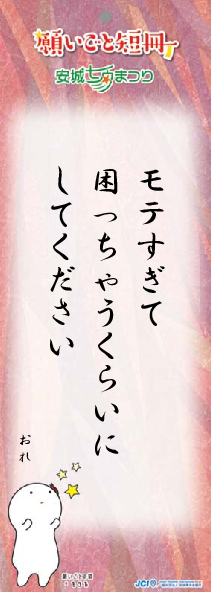 願いごと短冊
安城七夕まつり
モテすぎて
困っちゃうくらいに
してください
おれ
願いごと短冊
JCI